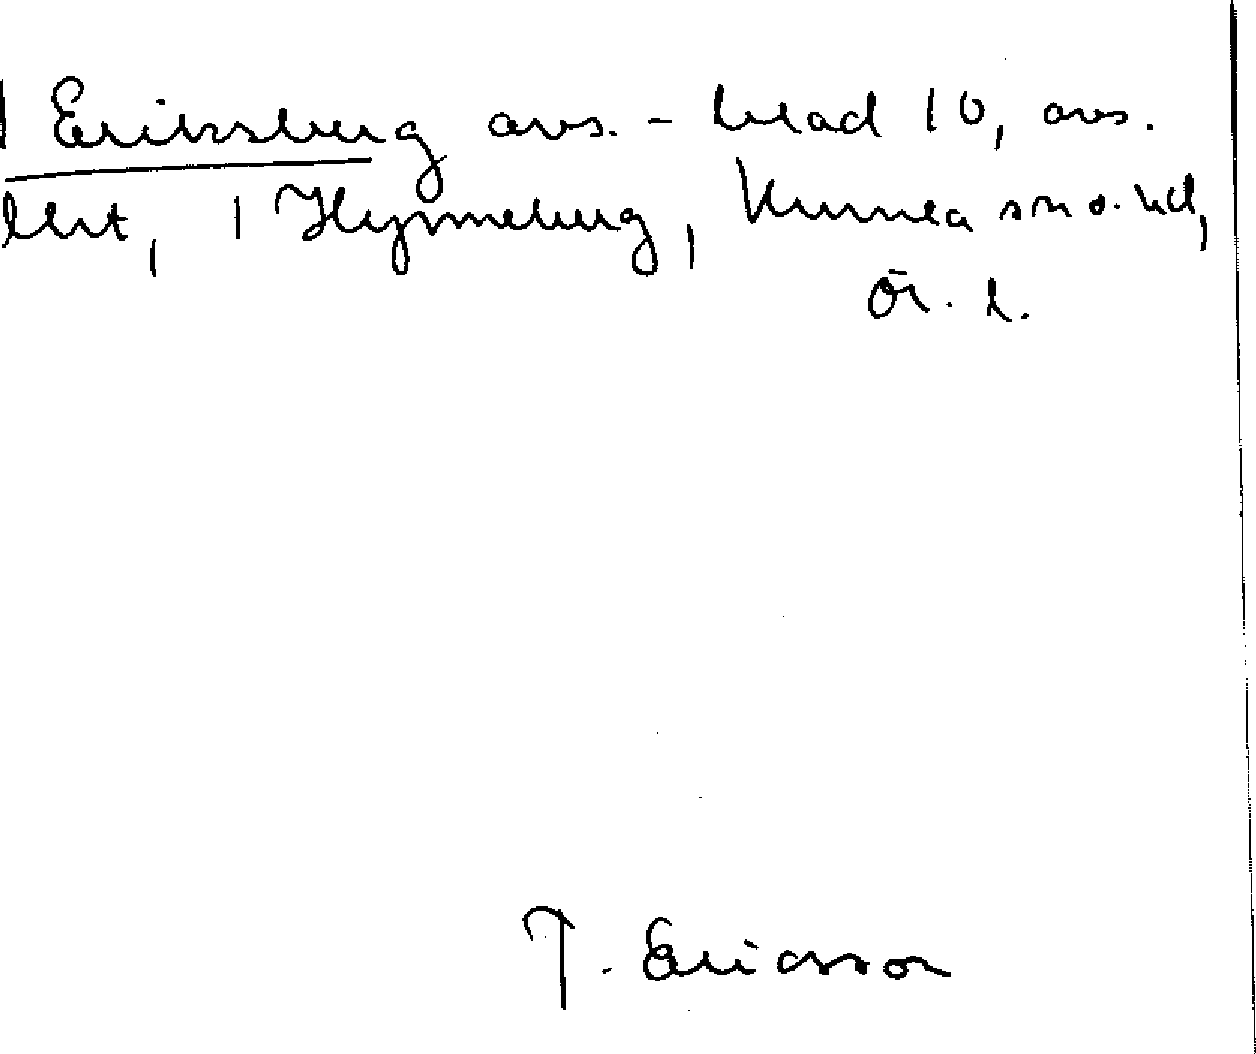 Eriksberg avs. - blad 10, avs.
1 Hynneberg, Kumla sn o. hd,
Ör. l.
T. Ericsson